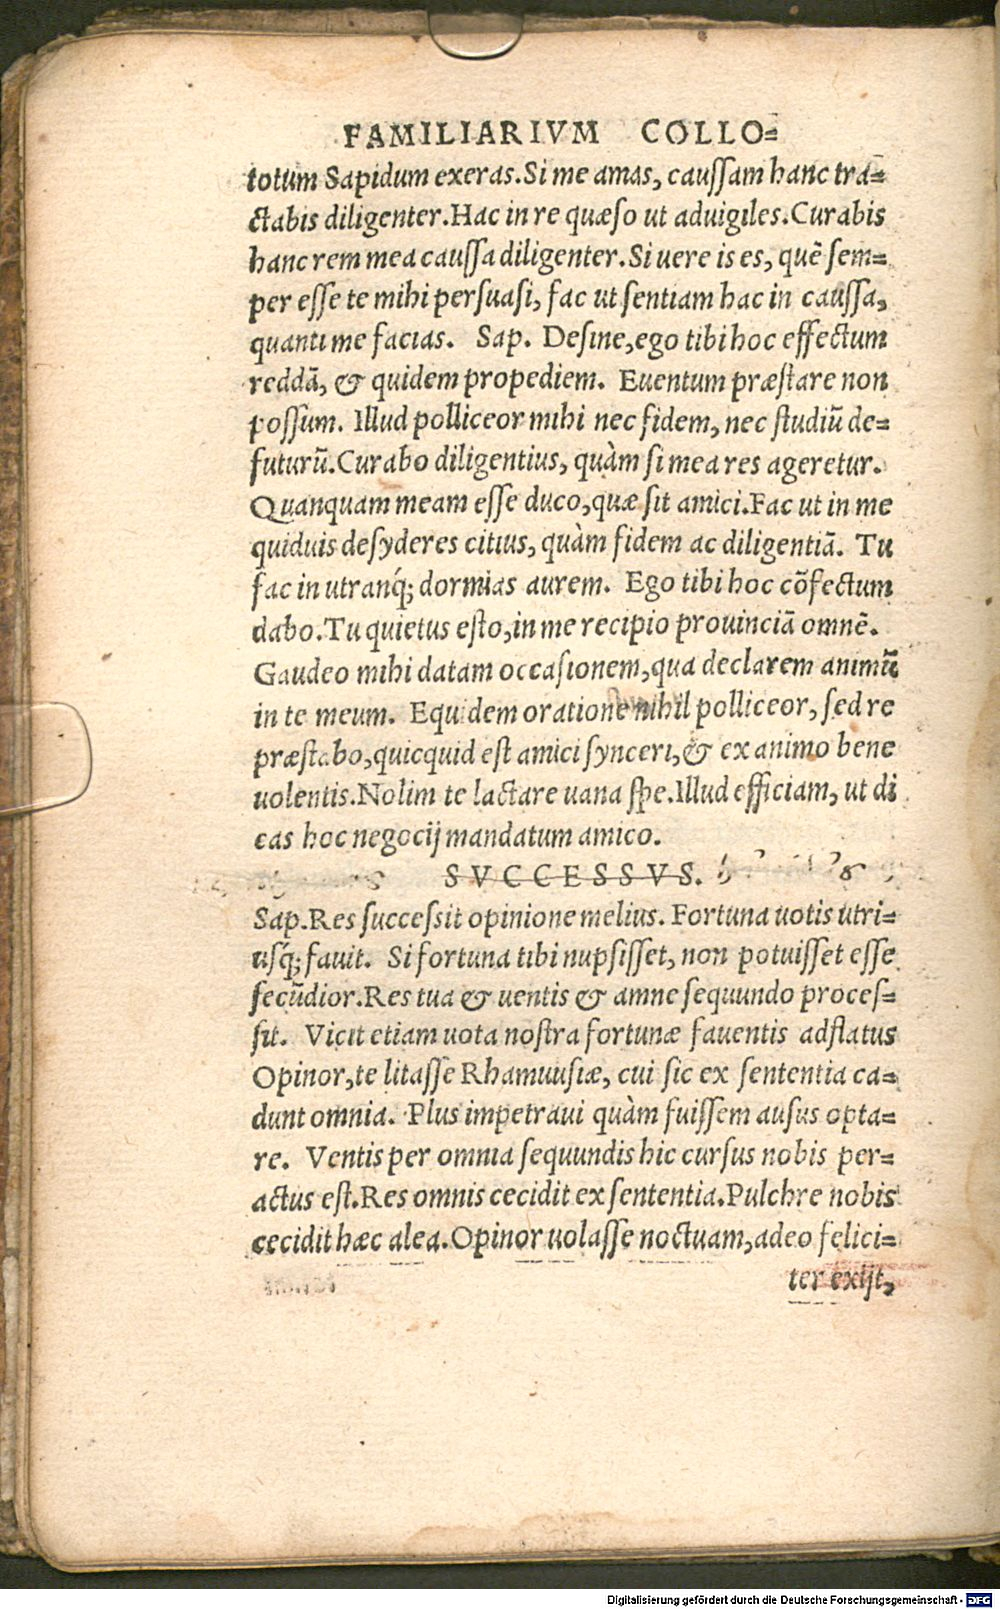 FAMILIARIVM COLLO=
totum Sapidum exeras. Si me amas, caussam hanc tra=
ctabis diligenter. Hac in re quæso ut aduigiles. Curabis
hanc rem mea caussa diligenter. Si uere is es, quẽ sem=
per esse te mihi persuasi, fac ut sentiam hac in caussa,
quanti me facias. Sap. Desine, ego tibi hoc effectum
reddã, & quidem propediem. Euentum præstare non
possum. Illud polliceor mihi nec fidem, nec studiũ de=
futurũ. Curabo diligentius, quàm si mea res ageretur.
Quanquam meam esse duco, quæ sit amici. Fac ut in me
quiduis desyderes citius, quàm fidem ac diligentiã. Tu
fac in utranq́; dormias aurem. Ego tibi hoc cõfectum
dabo. Tu quietus esto, in me recipio prouinciã omnẽ.
Gaudeo mihi datam occasionem, qua declarem animũ
in te meum. Equidem oratione nihil polliceor, sed re
præstabo, quicquid est amici synceri, & ex animo bene
uolentis. Nolim te lactare uana spe. Illud efficiam, ut di
cas hoc negocij mandatum amico.
SVCCESSVS.
Sap. Res successit opinione melius. Fortuna uotis utri=
usq́; fauit. Si fortuna tibi nupsisset, non potuisset esse
secũdior. Res tua & uentis & amne sequundo proces=
sit. Vicit etiam uota nostra fortunæ fauentis adflatus
Opinor, te litasse Rhamuusiæ, cui sic ex sententia ca=
dunt omnia. Plus impetraui quàm fuissem ausus opta=
re. Ventis per omnia sequundis hic cursus nobis per=
actus est. Res omnis cecidit ex sententia. Pulchre nobis
cecidit hæc alea. Opinor uolasse noctuam, adeo felici=
ter exijt,
Digitalisierung gefördert durch die Deutsche Forschungsgemeinschaft - DFG